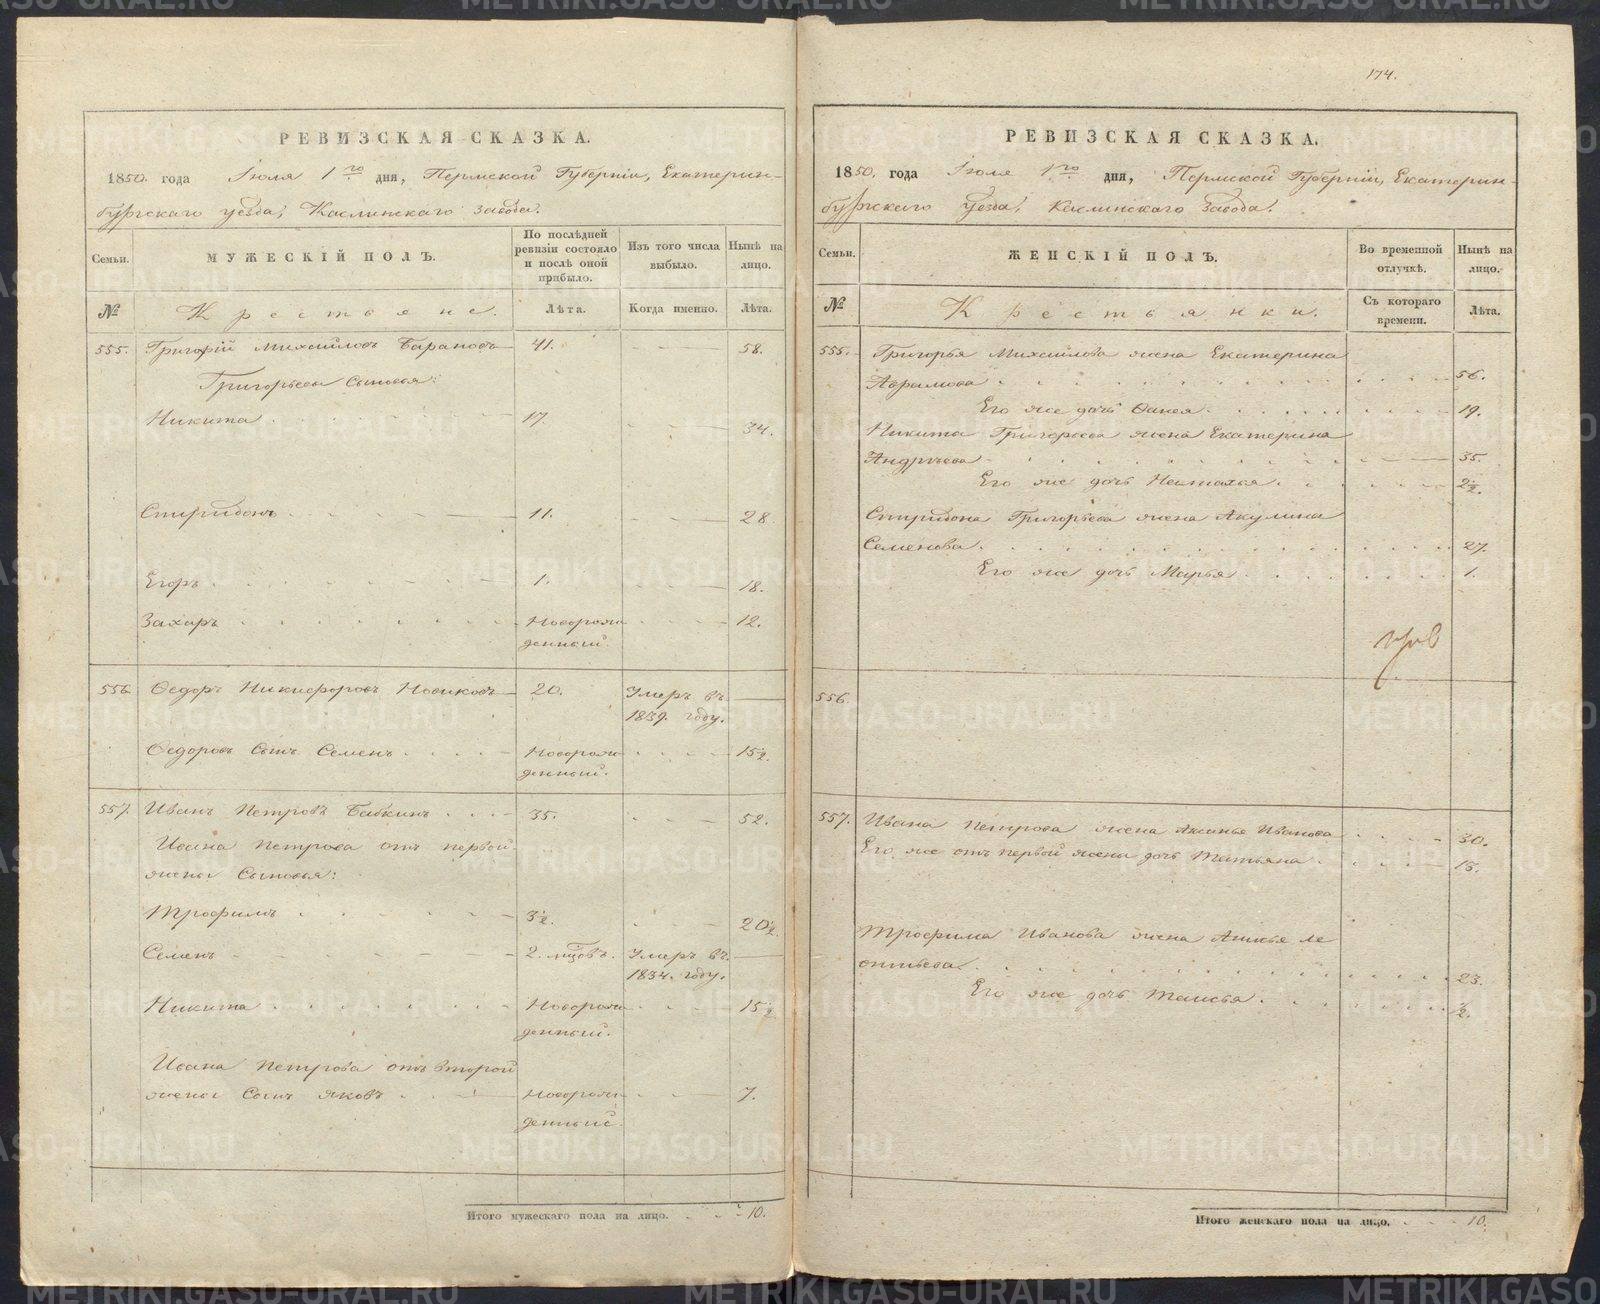 174.
РЕВИЗСКАЯ СКАЗКА.
1850. года Іюля 1го дня, Пермской Губерніи, Екатерин-
бургскаго уезда, Каслинскаго завода.
Семьи.
МУЖЕСКІЙ ПОЛЪ.
По послѣдней ревизіи состояло и послѣ оной прибыло.
Изъ того числа выбыло.
Нынѣ на лицо.
№
Крестьяне.
Лѣта.
Когда именно.
Лѣта.
555. Григорій Михайловъ Барановъ 41. 58.
Григорьевы Сыновья:
Никита 17. 34.
Спиридонъ 11. 28.
Егоръ 1. 18.
Захаръ Новорож- 12.
денный.
556. Федоръ Никифоровъ Новиковъ 20. Умеръ въ
1839. году.
Федоровъ Сынъ Семенъ Новорож- 15½.
денный.
557. Иванъ Петровъ Бабкинъ 35. 52.
Ивана Петрова отъ первой
жены Сыновья:
Трофимъ 3½. 20½.
Семенъ 2. мцовъ. Умеръ въ
1834. году.
Никита Новорож- 15½
денный.
Ивана Петрова отъ второй
жены Сынъ Яковъ Новорож- 7.
денный.
Итого мужескаго пола на лицо. 10.
РЕВИЗСКАЯ СКАЗКА.
1850. года Іюля 1го дня, Пермской Губерніи, Екатерин-
бургскаго Уезда, Каслинскаго Завода.
Семьи.
ЖЕНСКІЙ ПОЛЪ.
Во временной отлучкѣ.
Нынѣ на лицо.
№
Крестьянки.
Съ котораго времени.
Лѣта.
555. Григорья Михайлова жена Екатерина
Аврамова 56.
Его же дочь 19.
Никиты Григорьева жена Екатерина
Андрѣева 35.
Его же дочь Наталья 2½.
Спиридона Григорьева жена Акулина
Семенова 27.
Его же дочь Марья 1.
556.
557. Ивана Петрова жена Аксинья Иванова 30.
Его же отъ первой жены дочь Татьяна 15.
Трофима Иванова жена Ле
онтьева 23.
Его же дочь Таисья ½.
Итого женскаго пола на лицо. 10.
METRIKI.GASO-URAL.RU